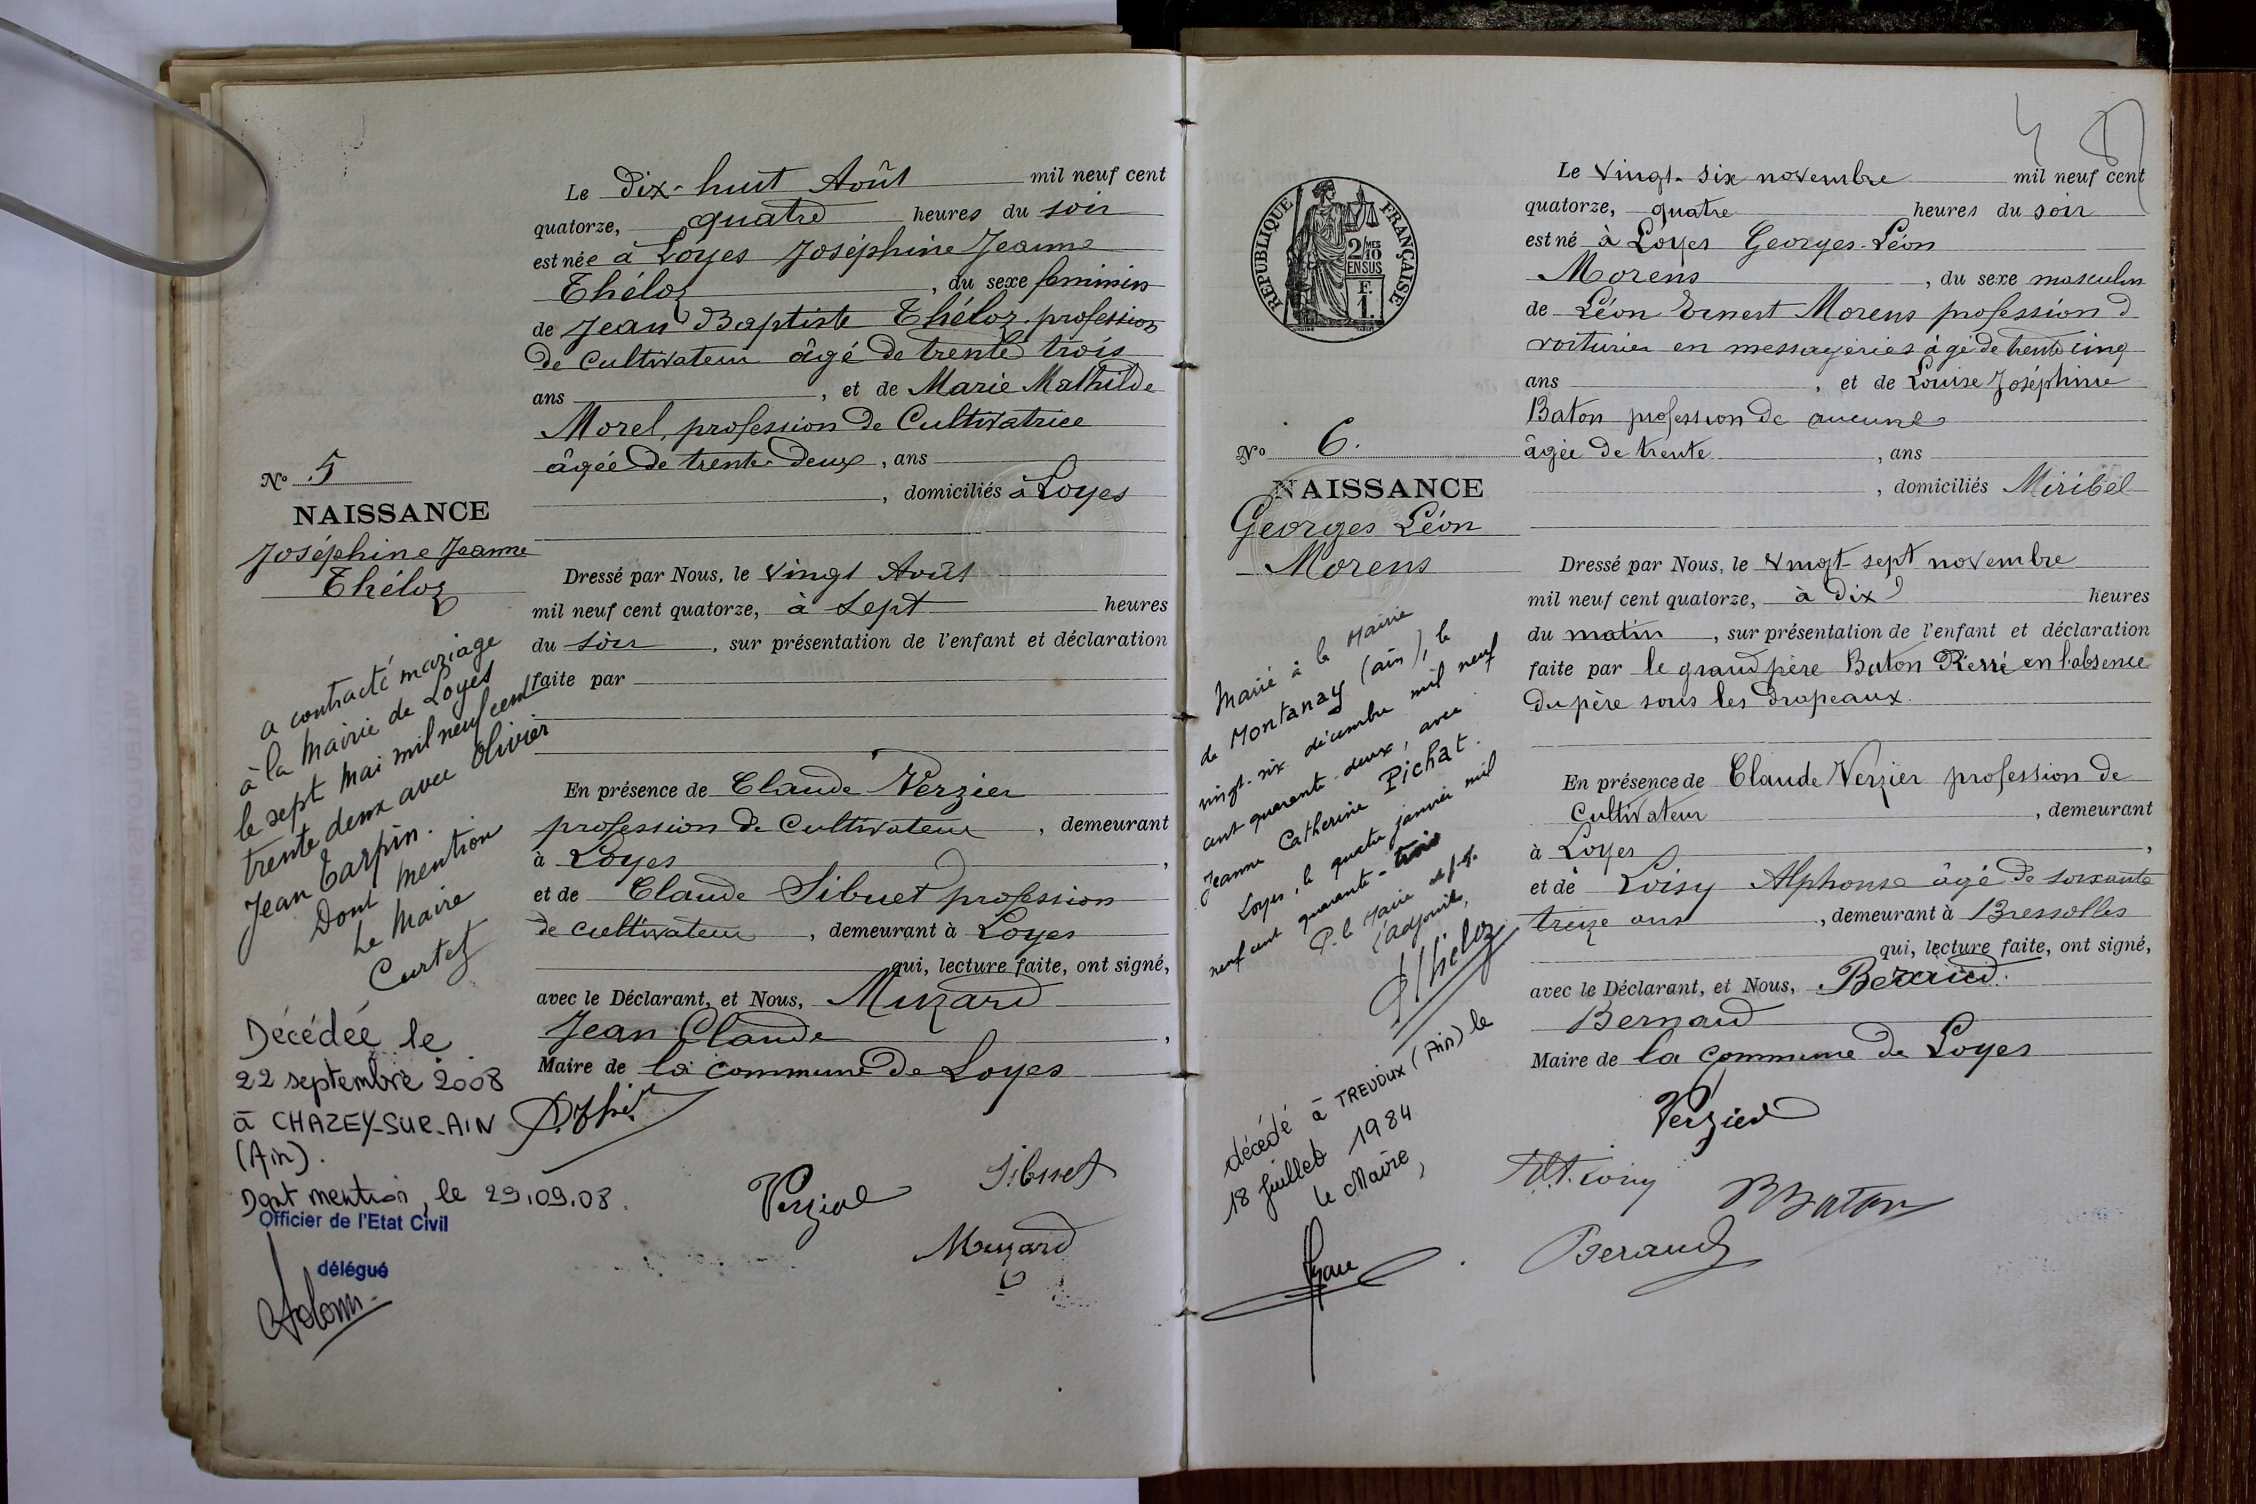 Le dix-huit Août mil neuf cent
quatorze, quatre heures du soir
est née à Loyes Joséphine Jeanne
Théloz, du sexe feminin
de Jean Baptiste Théloz profession
de cultivateur âgé de trente trois
ans, et de Marie Mathilde
Morel, profession de Cultivatrice
âgée de trente-deux, ans
, domiciliés à Loyes
No 5
NAISSANCE
Joséphine Jeanne
Théloz
Dressé par Nous, le vingt Août
mil neuf cent quatorze, à sept heures
du soir, sur présentation de l'enfant et déclaration
faite par
En présence de Claude Verzier
profession de Cultivateur, demeurant
à Loyes,
et de Claude Sibuet profession
de cultivateur, demeurant à Loyes
qui, lecture faite, ont signé,
avec le Déclarant, et Nous, Muzard
Jean Claude,
Maire de la commune de Loyes
a contracté mariage
à la Mairie de Loyes
le sept Mai mil neuf cent
trente deux avec Olivier
Jean Tarpin.
Dont mention
Le Maire
Curtet
Décédée le
22 septembre 2008
à CHAZEY-SUR-AIN
(Ain).
Dont mention, le 29.09.08.
Officier de l'Etat Civil
délégué
Sibuet
Muzard
48
RÉPUBLIQUE FRANÇAISE
2/10 MES
EN SUS
F.
1.
Le vingt-six novembre mil neuf cent
quatorze, quatre heures du soir
est né à Loyes Georges-Léon
Morens, du sexe masculin
de Léon Ernest Morens profession d
voiturier en messageries âgé de trente cinq
ans, et de Louise Joséphine
Baton profession de aucune
âgée de trente, ans
, domiciliés Miribel
No 6.
NAISSANCE
Georges Léon
Morens
Dressé par Nous, le vingt-sept novembre
mil neuf cent quatorze, à dix heures
du matin, sur présentation de l'enfant et déclaration
faite par le grand père Baton Pierre en l'absence
du père sous les drapeaux.
En présence de Claude Verzier profession de
Cultivateur, demeurant
à Loyes,
et de Loisy Alphonse âgé de soixante
treize ans, demeurant à Bressolles
qui, lecture faite, ont signé,
avec le Déclarant, et Nous, Beraud.
Bernard
Maire de la commune de Loyes
Marié à la Mairie
de Montanay (ain), le
vingt-six décembre mil neuf
cent quarante-deux, avec
Jeanne Catherine Pichat.
Loyes, le quatre janvier mil
neuf cent quarante-trois
P. le Maire
l'adjoint,
Théloz
décédé à TREVOUX (Ain) le
18 juillet 1984
Le Maire,
Verzier
BBaton
Beraud